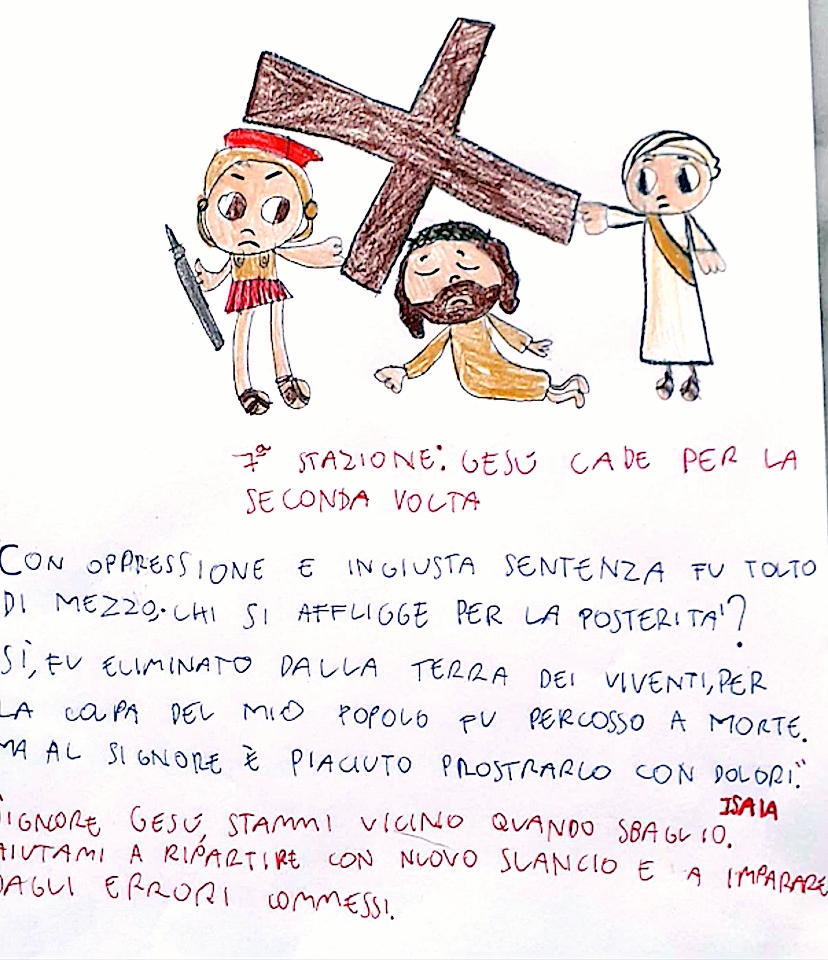 7ª STAZIONE: GESÙ CADE PER LA
SECONDA VOLTA
CON OPPRESSIONE E INGIUSTA SENTENZA FU TOLTO
DI MEZZO; CHI SI AFFLIGGE PER LA POSTERITA'?
SÌ, FU ELIMINATO DALLA TERRA DEI VIVENTI, PER
LA COLPA DEL MIO POPOLO FU PERCOSSO A MORTE.
MA AL SIGNORE È PIACIUTO PROSTRARLO CON DOLORI."
ISAIA
SIGNORE GESÙ, STAMMI VICINO QUANDO SBAGLIO.
AIUTAMI A RIPARTIRE CON NUOVO SLANCIO E A IMPARARE
DAGLI ERRORI COMMESSI.